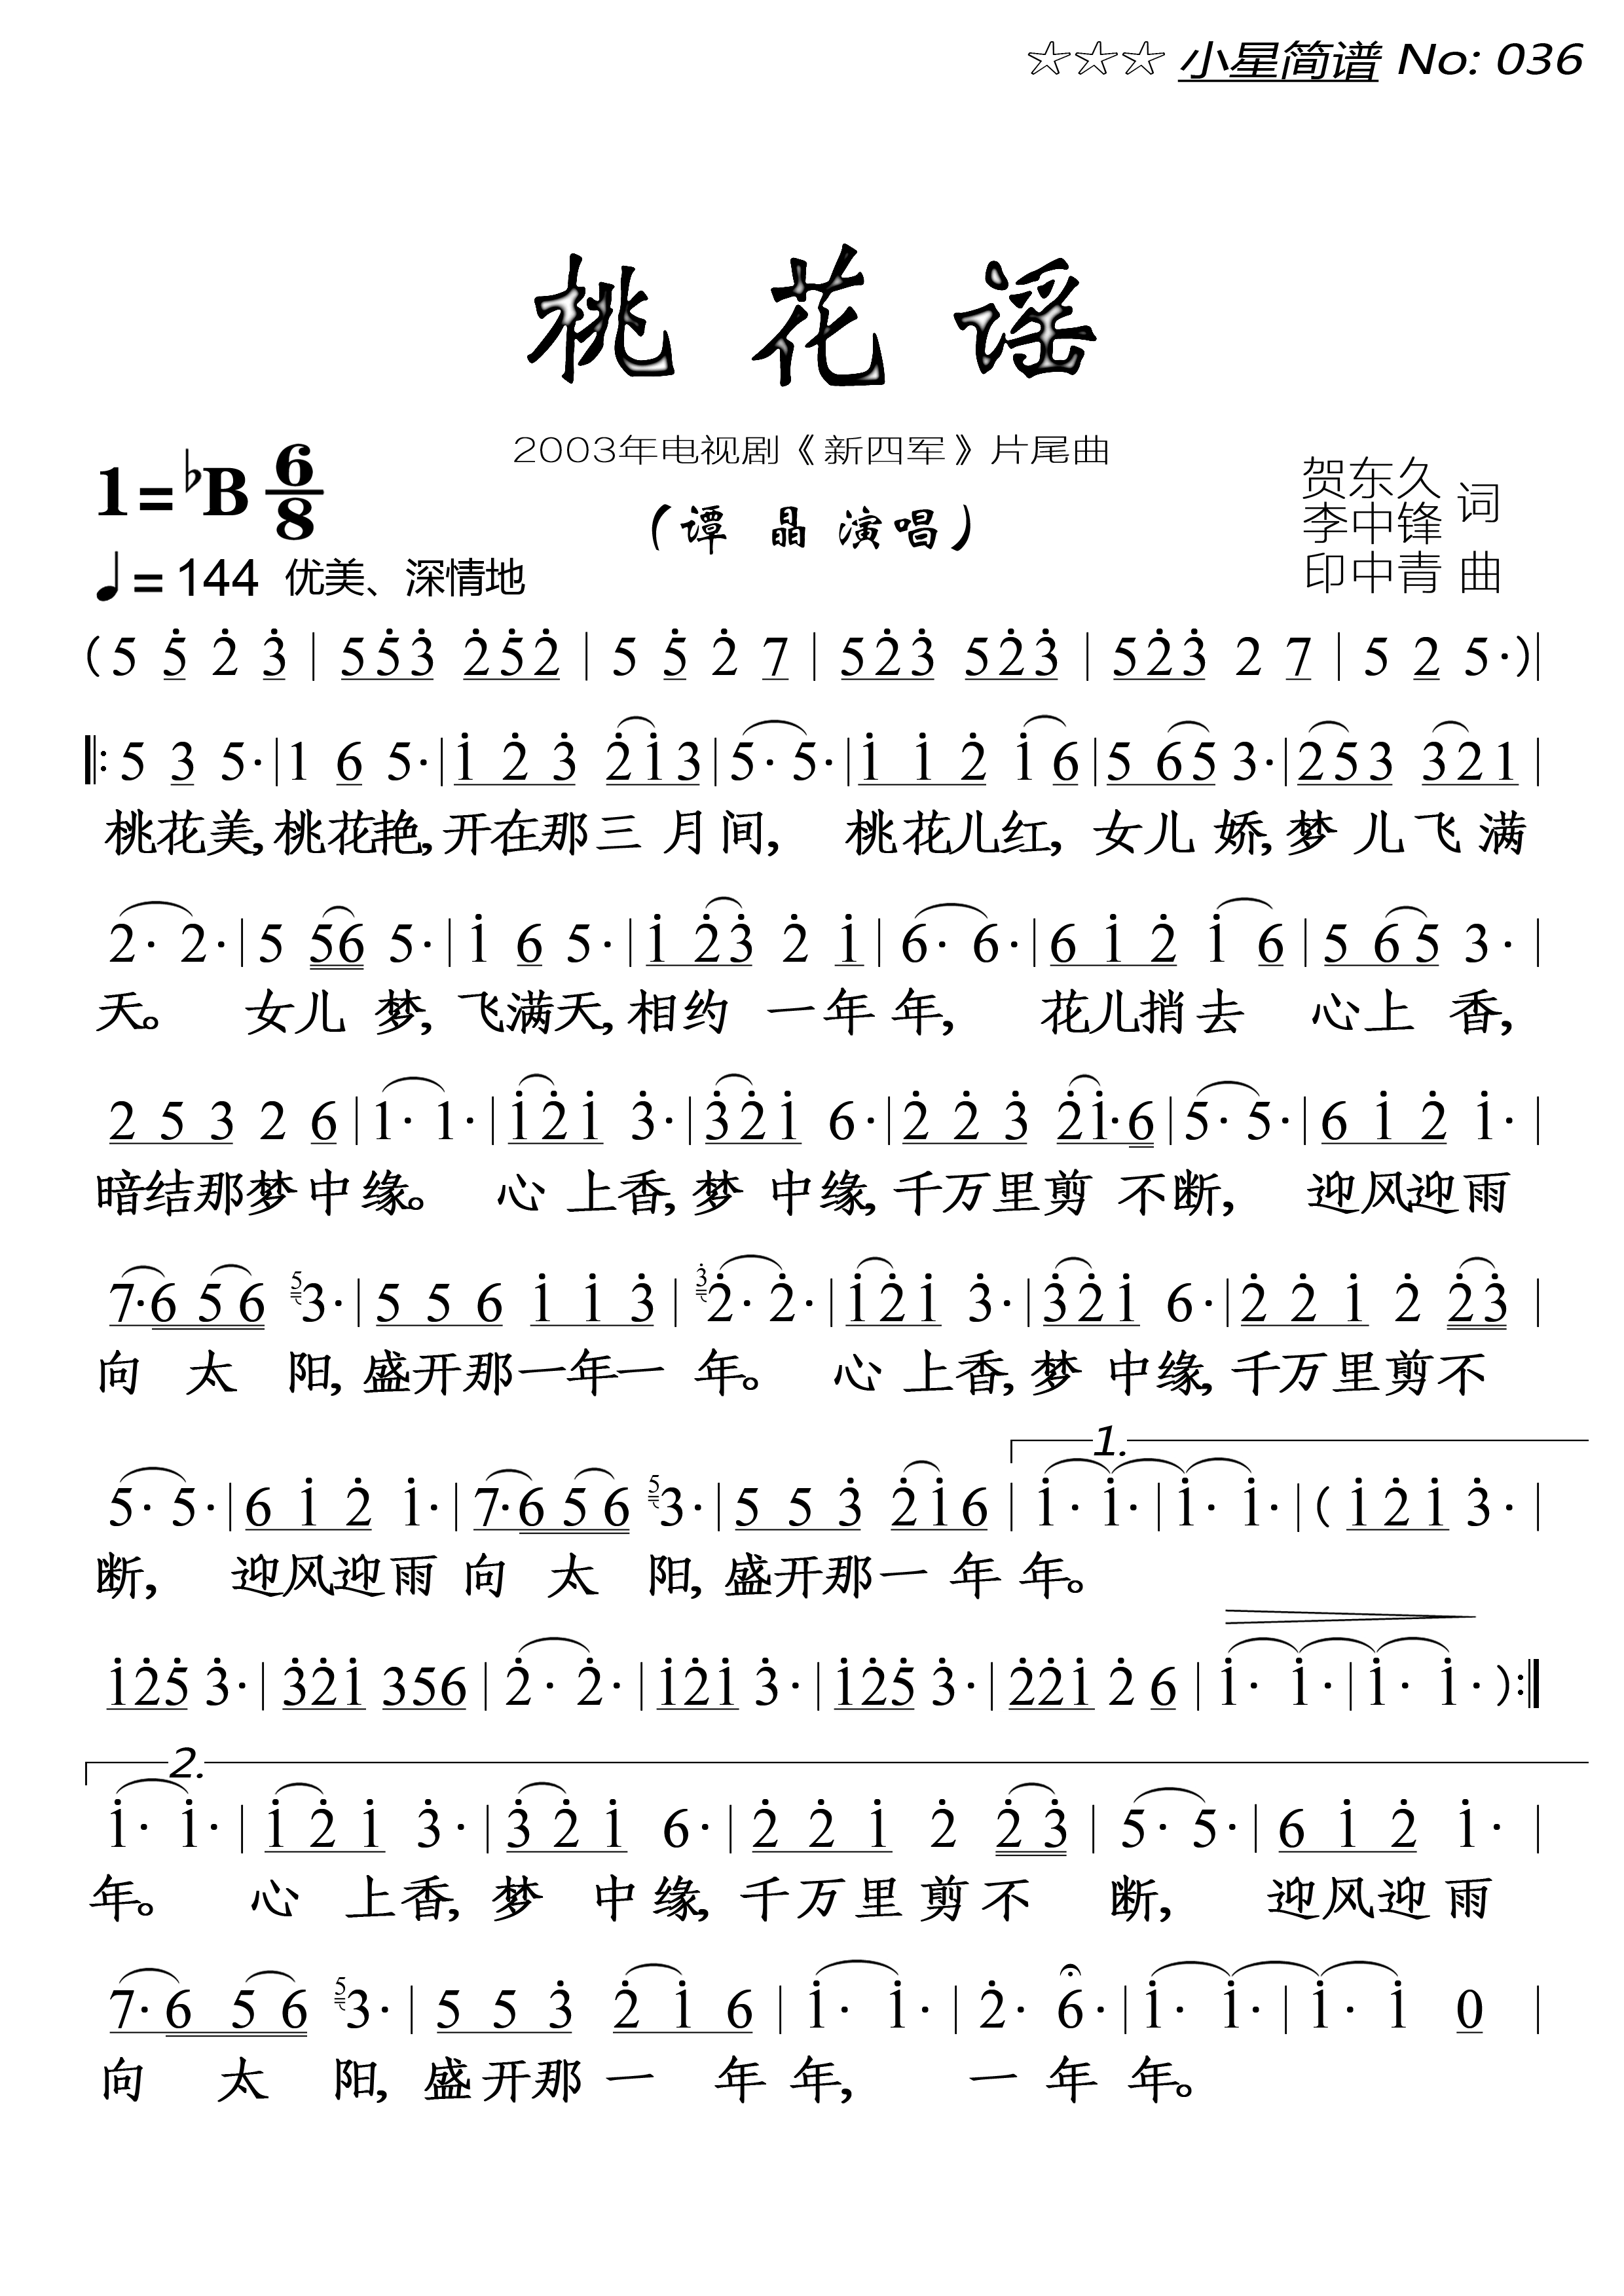 ☆☆☆ 小星简谱 No: 036
桃花谣
2003年电视剧《新四军》片尾曲
(谭 晶 演唱)
1=♭B 6/8
贺东久 词
李中锋
印中青 曲
♩=144 优美、深情地
(5 5̇ 2̇ 3̇ | 5 5̇ 3̇ 2̇ 5̇ 2̇ | 5 5̇ 2̇ 7 | 5 2̇ 3̇ 5 2̇ 3̇ | 5 2̇ 3̇ 2 7 | 5 2 5·) |
‖: 5 3 5· | 1 6 5· | 1̇ 2̇ 3̇ 2̇ 1̇ 3 | 5· 5· | 1̇ 1̇ 2̇ 1̇ 6 | 5 6 5 3· | 2 5 3 3 2 1 |
桃花美,桃花艳,开在那三月间, 桃花儿红,女儿娇,梦儿飞满
2· 2· | 5 5 6 5· | 1̇ 6 5· | 1̇ 2̇ 3̇ 2̇ 1̇ | 6· 6· | 6 1̇ 2̇ 1̇ 6 | 5 6 5 3· |
天。 女儿梦,飞满天,相约一年年, 花儿捎去心上香,
2 5 3 2 6 | 1· 1· | 1̇ 2̇ 1̇ 3̇· | 3̇ 2̇ 1̇ 6· | 2̇ 2̇ 3̇ 2̇ 1̇· 6 | 5· 5· | 6 1̇ 2̇ 1̇· |
暗结那梦中缘。 心上香,梦中缘,千万里剪不断, 迎风迎雨
7· 6 5 6 5 3· | 5 5 6 1̇ 1̇ 3̇ | 3̇ 2̇· 2̇· | 1̇ 2̇ 1̇ 3̇· | 3̇ 2̇ 1̇ 6· | 2̇ 2̇ 1̇ 2̇ 2̇ 3̇ |
向太阳,盛开那一年一年。 心上香,梦中缘,千万里剪不
1.
5· 5· | 6 1̇ 2̇ 1̇· | 7· 6 5 6 5 3· | 5 5 3̇ 2̇ 1̇ 6 | 1̇· 1̇· | 1̇· 1̇· | (1̇ 2̇ 1̇ 3̇· |
断, 迎风迎雨向太阳,盛开那一年年。
1̇ 2̇ 5̇ 3̇· | 3̇ 2̇ 1̇ 3 5 6 | 2̇· 2̇· | 1̇ 2̇ 1̇ 3̇· | 1̇ 2̇ 5̇ 3̇· | 2̇ 2̇ 1̇ 2̇ 6 | 1̇· 1̇· | 1̇· 1̇·) :‖
2.
1̇· 1̇· | 1̇ 2̇ 1̇ 3̇· | 3̇ 2̇ 1̇ 6· | 2̇ 2̇ 1̇ 2̇ 2̇ 3̇ | 5· 5· | 6 1̇ 2̇ 1̇· |
年。 心上香,梦中缘,千万里剪不断, 迎风迎雨
7· 6 5 6 5 3· | 5 5 3̇ 2̇ 1̇ 6 | 1̇· 1̇· | 2̇· 6· | 1̇· 1̇· | 1̇· 1̇ 0 |
向太阳,盛开那一年年, 一年年。